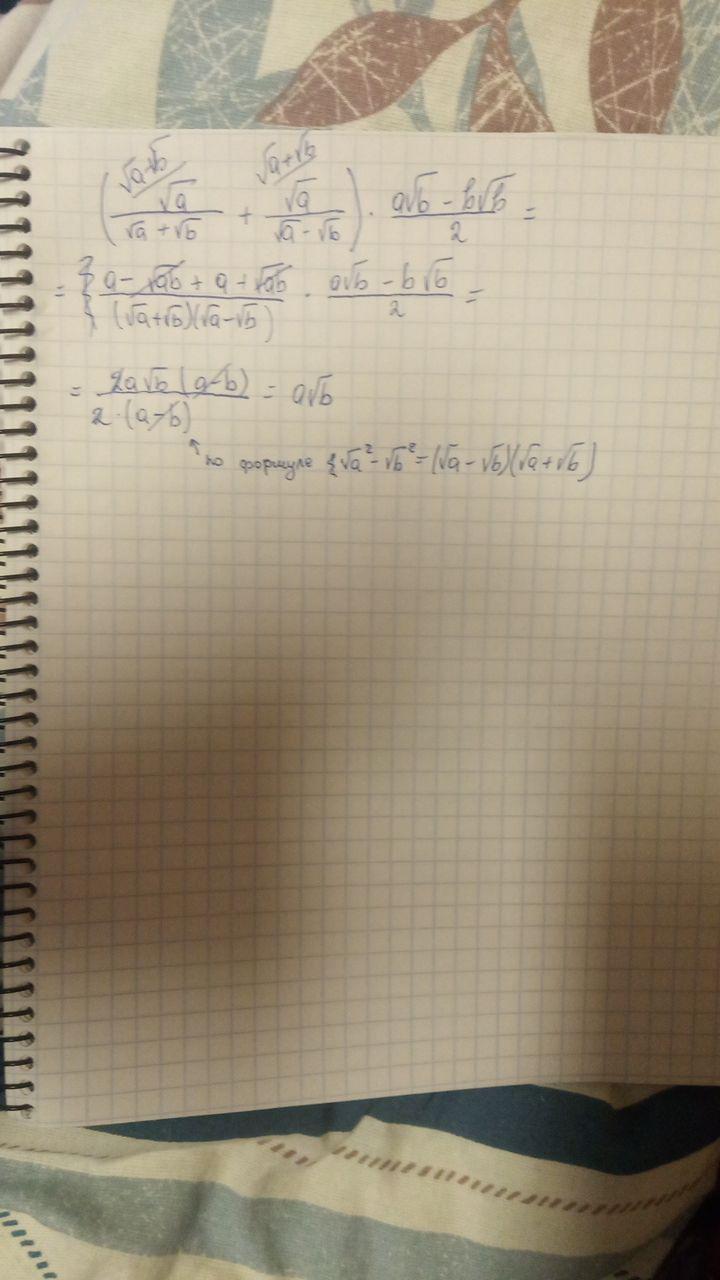 (√a-√b/ √a / (√a + √b) + √a+√b/ √a / (√a - √b)) · (a√b - b√b) / 2 =
= (a - √ab + a + √ab) / ((√a+√b)(√a-√b)) · (a√b - b√b) / 2 =
= 2a√b (a-b) / (2·(a-b)) = a√b
по формуле (√a² - √b² = (√a - √b)(√a + √b)